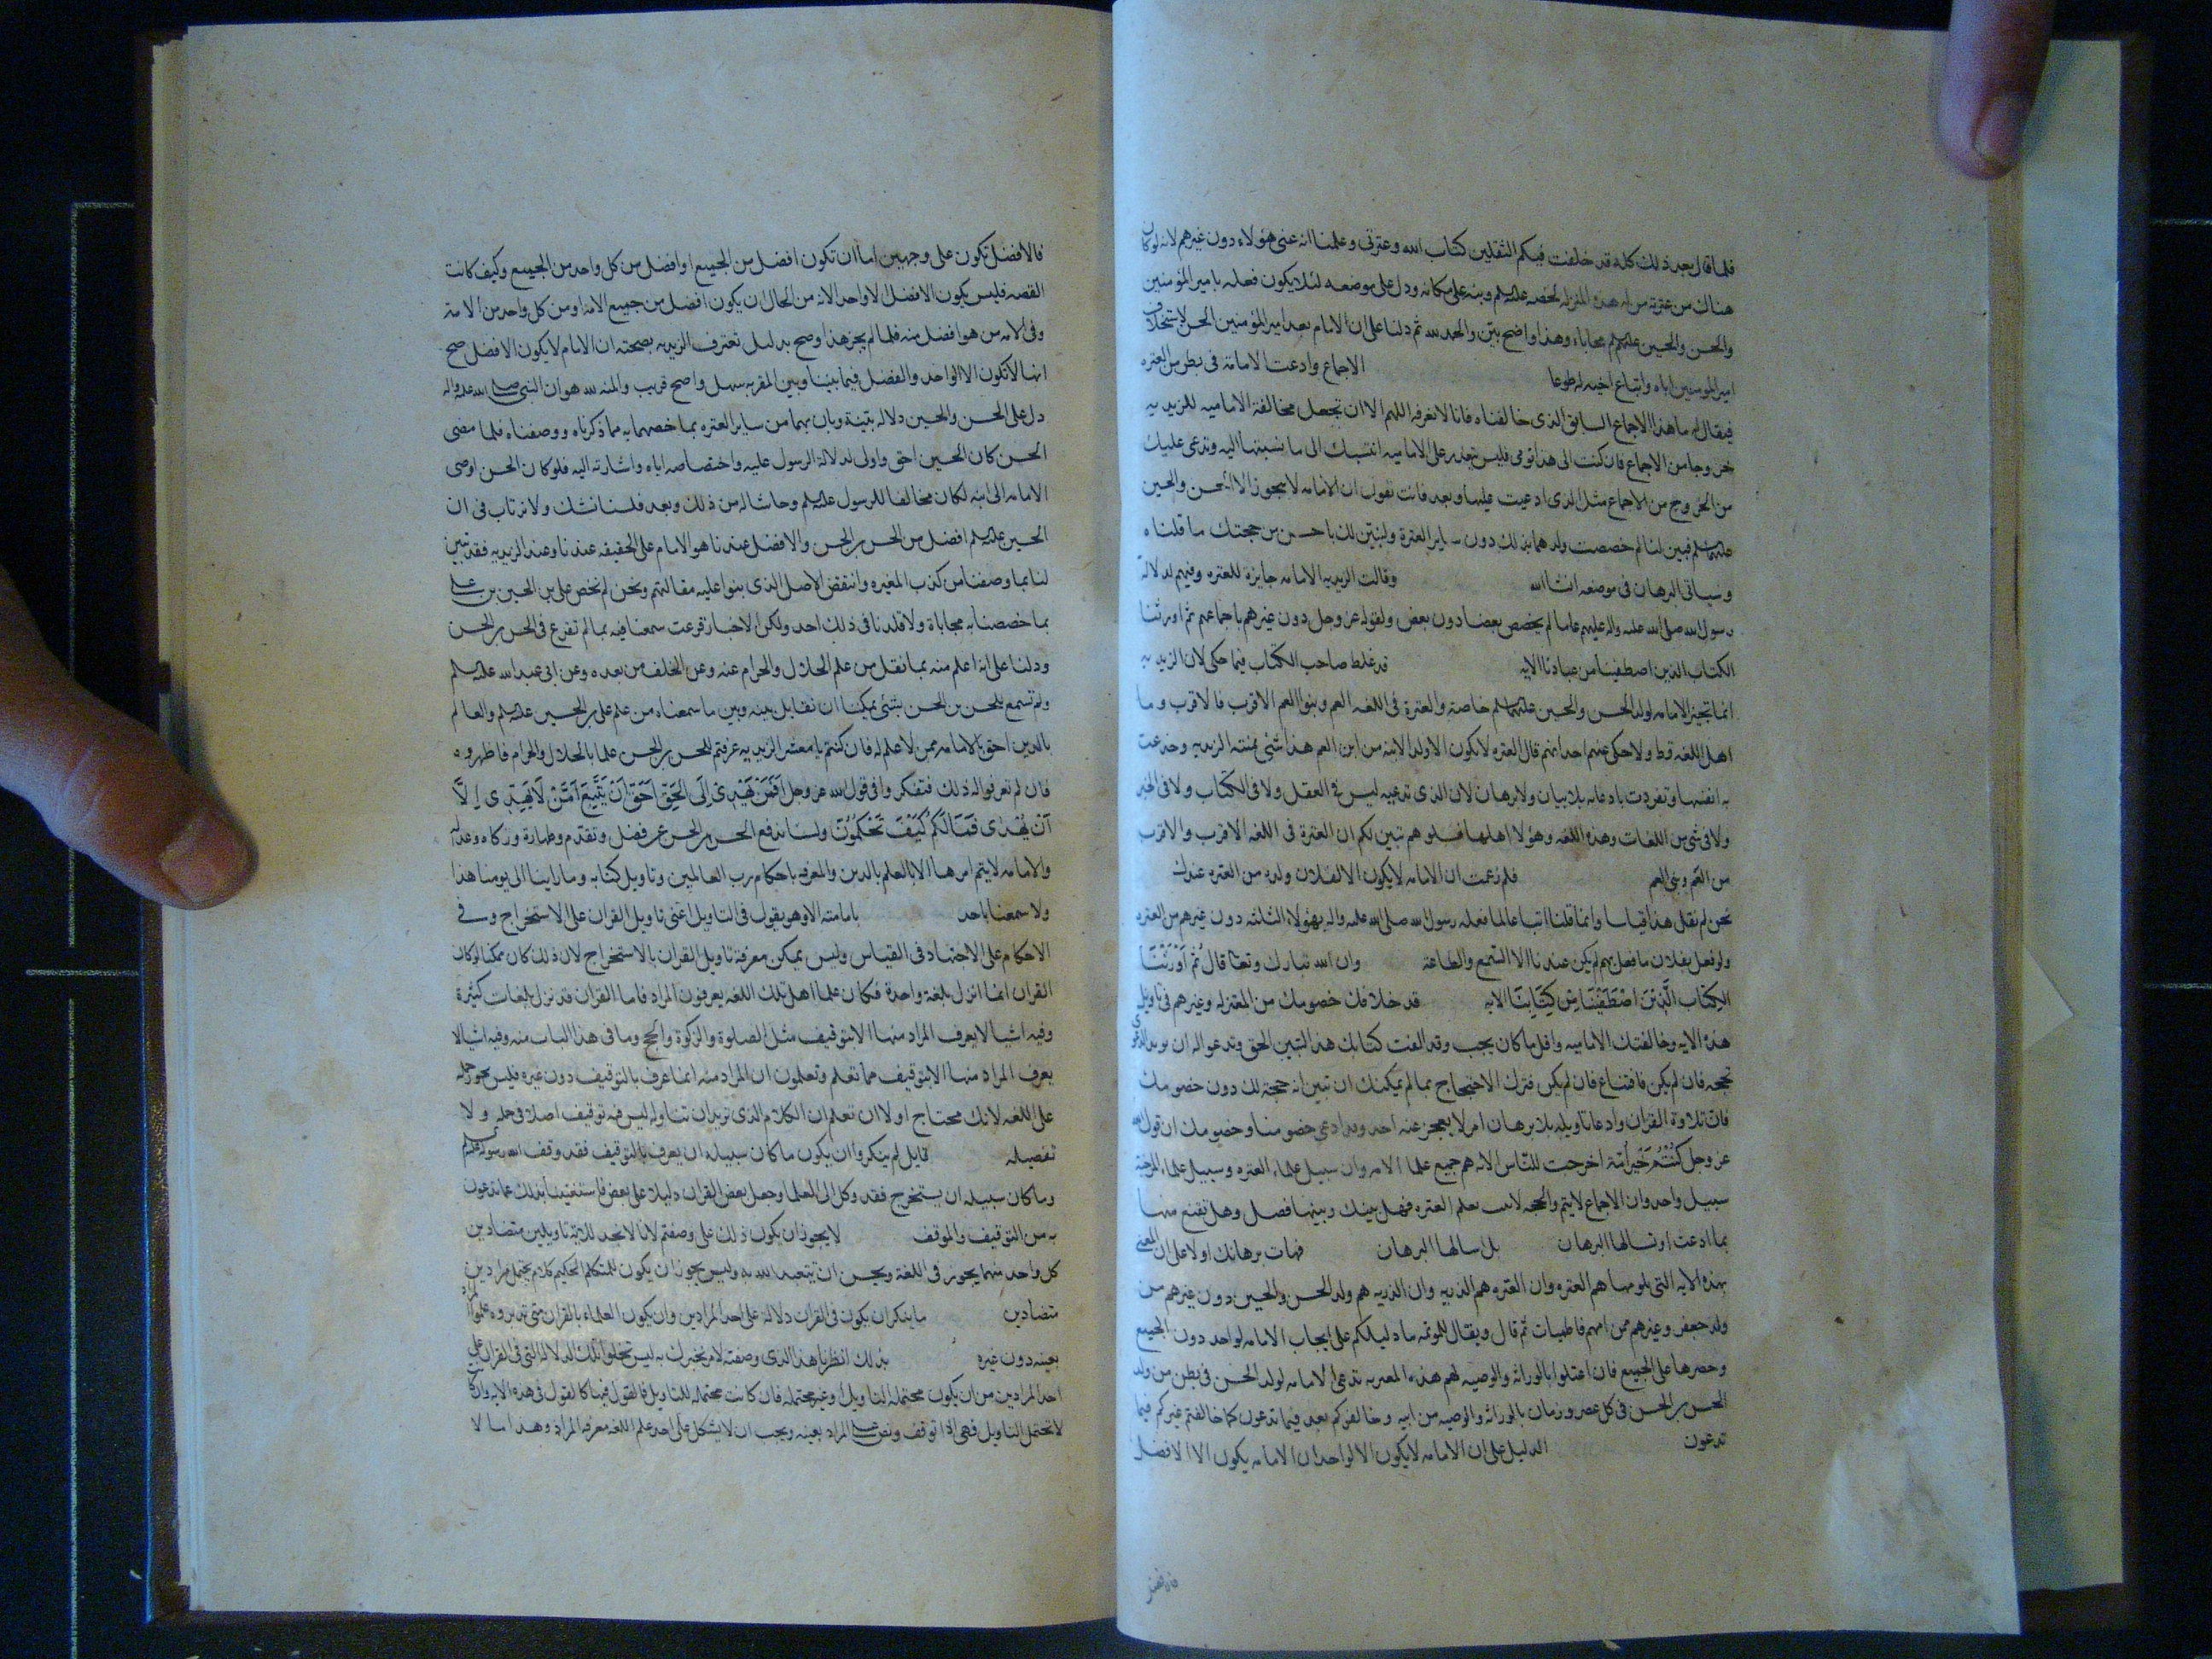 فلما قال بعد ذلك كله قد خلفت فيكم الثقلين كتاب الله وعترتي وعلمنا انه عنى هولاء دون غيرهم لانه لو كان
هناك من عترته من له هذه المنزله لخصه عليه السلم ونبه على مكانه ودل على موضعه لئلا يكون فعله بامير المؤمنين
والحسن والحسين عليهم السلم محاباة وهذا واضح بين والحمد لله ثم دلنا على ان الامام بعد امير المؤمنين الحسن لاستخلاف
امير المومنين اياه واتباع اخيه له طوعا الاجماع وادعت الامامة في بطن من العتره
فيقال له ما هذا الاجماع السابق الذى خالفناه فانا لا نعرفه اللهم الا ان تجعل مخالفة الاماميه للزيديه
خروجا من الاجماع فان كنت الى هذا تومى فليس يتعذر على الاماميه ان تنسبك الى ما نسبتها اليه وتدعى عليك
من الخروج من الاجماع مثل الذى ادعيت عليها وبعد فانت تقول ان الامامه لا تجوز الا الحسن والحسين
عليهما السلم فبين لنا لم خصصت ولدهما بذلك دون ساير العترة ولنبين لك باحسن من حجتك ما قلناه
وسياتى البرهان فى موضعه انشا الله وقالت الزيديه الامامه جايزة للعتره وفيهم لدلالة
رسول الله صلى الله عليه واله عليهم عاما لم يخصص بعضا دون بعض ولقوله عز وجل دون غيرهم باجماعهم ثم اورثنا
الكتاب الذين اصطفينا من عبادنا الايه قد غلط صاحب الكتاب فيما حكى لان الزيديه
انما تجيز الامامه لولد الحسن والحسين عليهما السلم خاصة والعترة فى اللغه العم وبنوا العم الاقرب فالاقرب وما
اهل اللغه قط ولا حكى عنهم احد انهم قال العتره لا تكون الا ولد الابنه من ابن العم هذا شئ تمنته الزيديه وخدعت
به انفسها وتفردت بادعائه بلا بيان ولا برهان لان الذى تدعيه ليس فى العقل ولا فى الكتاب ولا فى الخبر
ولا فى شى من اللغات وهذه اللغه وهؤلا اهلها فسلوهم يتبين لكم ان العترة فى اللغه الاقرب والاقرب
من العم وبنى العم فلم زعمت ان الامامه لا يكون لفلان ولده من العتره عندك
نحن لم نقل هذا قياسا وانما قلنا اتباعا لما فعله رسول الله صلى الله عليه واله بهولاء الثلثه دون غيرهم من العتره
ولو فعل بفلان ما فعل بهم لم يكن عندنا الا السمع والطاعة وان الله تبارك وتعا قال ثُم اَوْرَثْنَا
الكِتَاب الَّذِيْنَ اصْطَفَيْنَا مِنْ الايه قد خلافك خصومك من المعتزله وغيرهم فى تاويل
هذه الايه وخالفتك الاماميه واقل ما كان يجب وقد الفت كتابك هذا لتبين الحق وتدعوا له ان تويد الدعوى
بحجه فان لم يكن فاقناع فان لم يكن فترك الاحتجاج بما لم يمكنك ان تبين انه حجة لك دون خصومك
فان تلاوة القران وادعا تاويله بلا برهان امر لا يعجز عنه احد وقد ادعى خصومنا وخصومك ان قول الله
عز وجل كُنْتُمْ خَيْرَ اُمَّة اخرجت للنّاس الايه هم جميع علما الامه وان سبيل علماء العتره وسبيل علماء المرجئة
سبيل واحد وان الاجماع لا يتم والحجه لا تثبت بعلم العتره فهل بينك وبينها فصل وهل تقنع منها
بما ادعت او تسالها البرهان بل اسالها البرهان فهات برهانك اولا على ان المعنى
بهذه الايه التى تلوتها هم العتره وان العتره هم الذريه وان الذريه هم ولد الحسن والحسين دون غيرهم من
ولد جعفر وغيرهم ممن امهم فاطميات ثم قال ويقال للموتمه ما دليلكم على ايجاب الامامه لواحد دون الجميع
وحصرها على الجميع فان اعتلوا بالوراثه والوصيه لهم هذه المغيريه تدعى الامامه لولد الحسن فى بطن من ولد
الحسن بن الحسن فى كل عصر وزمان بالوراثه والوصيه من ابيه وخالفوكم بعد فيما تدعون كما خالفتم غيركم فيما
تدعون الدليل على ان الامامه لا يكون الا لواحد ان الامام لا يكون الا الافضل
فالافضل تكون على وجهين اما ان تكون افضل من الجميع او افضل من كل واحد من الجميع وكيف كانت
القصه فليس يكون الافضل الا واحدا لانه من المحال ان يكون افضل من جميع الامة او من كل واحد من الامة
وفى الامه من هو افضل منه فلما لم يجز هذا وصح بدليل تعترف الزيديه بصحته ان الامام لا يكون الا افضل صح
انها لا تكون الا لواحد والفصل فيما بيننا وبين المغيريه سهل واضح قريب والمنه لله هو ان النبى صلى الله عليه واله
دل على الحسن والحسين دلاله بيّنة وبان بهما من ساير العتره بما خصهما به مما ذكرناه ووصفناه فلما مضى
الحسن كان الحسين احق واولى لدلالة الرسول عليه واختصاصه اياه واشارته اليه فلو كان الحسن اوصى
الامامه الى ابنه لكان مخالفا للرسول عليه السلم وحاشا له من ذلك وبعد فلسنا نشك ولا نرتاب فى ان
الحسين عليه السلم افضل من الحسن بن الحسن والافضل عندنا هو الامام على الحقيقه عندنا وعند الزيديه فقد تبين
لنا بما وصفنا من كذب المغيره وانتقض الاصل الذى بنوا عليه مقالتهم ونحن لم نخص على بن الحسين بن على
بما خصصناه به محاباة ولا قلدنا فى ذلك احد ولكن الاخبار قرعت سمعنا فيه بما لم تقرع فى الحسن بن الحسن
ودلنا على انه اعلم منه بما نقل من علم الحلال والحرام عنه وعن الخلف من بعده وعن ابى عبد الله عليه السلم
ولم نسمع للحسن بن الحسن بشئ يمكننا ان نقابل بينه وبين ما سمعناه من علم على بن الحسين عليه السلم والعالم
بالدين احق بالامامه ممن لا علم له فان كنتم يا معشر الزيديه عرفتم للحسن بن الحسن علما بالحلال والحرام فاظهروه
فان لم تعرفوا له ذلك فتفكروا فى قول الله عز وجل اَفَمَنْ يَهْدِىْ اِلَى الْحَقِّ اَحَقُّ اَنْ يُتَّبَعَ اَمَّنْ لَا يَهِدِّى اِلَّا
اَنْ يُهْدٰى فَمَا لَكُمْ كَيْفَ تَحْكُمُوْنَ ولسنا ندفع الحسن بن الحسن عن فضل وتقدم وطهارة وزكاه وعداله
والامامه لا يتم امرها الا بالعلم بالدين والمعرفه باحكام رب العالمين وتاويل كتابه وما راينا الى يومنا هذا
ولا سمعنا باحد بامامته الا وهو يقول فى التاويل اعنى تاويل القران على الاستخراج وفى
الاحكام على الاجتهاد فى القياس وليس يمكن معرفة تاويل القران بالاستخراج لان ذلك كان ممكنا لو كان
القران انما انزل بلغة واحدة فكان علما اهل تلك اللغه يعرفون المراد فاما القران قد نزل بلغات كثيرة
وفيه اشيا لا يعرف المراد منها الا بتوقيف مثل الصلوة والزكوة والحج وما فى هذا الباب منه وفيه اشيا لا
يعرف المراد منها الا بتوقيف مما نعلم وتعلمون ان المراد منه انما عرف بالتوقيف دون غيره فليس يجوز حمله
على اللغه لانك محتاج اولا ان تعلم ان الكلام الذى تريد ان تتاوله ليس فيه توقيف اصلا فى جمله ولا
تفصيله قايل لم ينكروا ان يكون ما كان سبيله ان يعرف بالتوقيف فقد وقف الله رسوله عليه السلم
وما كان سبيله ان يستخرج فقد وكل الى العلما وجعل بعض القران دليلا على بعض فاستغنينا بذلك عما تدعون
به من التوقيف والموقف لا يجوز ان يكون ذلك على وصفتم لانا لا نجد للاية تاويلين متضادين
كل واحد منهما يجوز فى اللغة ويحسن ان يتعبد الله به وليس يجوز ان يكون للمتكلم الحكيم كلام يحتمل مرادين
متضادين ما ينكر ان يكون فى القران دلالة على احد المرادين وان يكون العلماء بالقران متى تدبروه علموا المراد
بعينه دون غيره بذلك انظرنا هذا الذى وصفته لامر نخبرك به ليس تخلوا تلك الدلاله التى فى القران على
احد المرادين من ان يكون محتمله للتاويل او غير محتمله فان كانت محتمله للتاويل فالقول فيها كالقول فى هذه الايه وان كانت
لا تحتمل التاويل فهى اذا توقف ونص على المراد بعينه ويجب ان لا يشكل على احد علم اللغه معرفه المراد وهذا ما لا